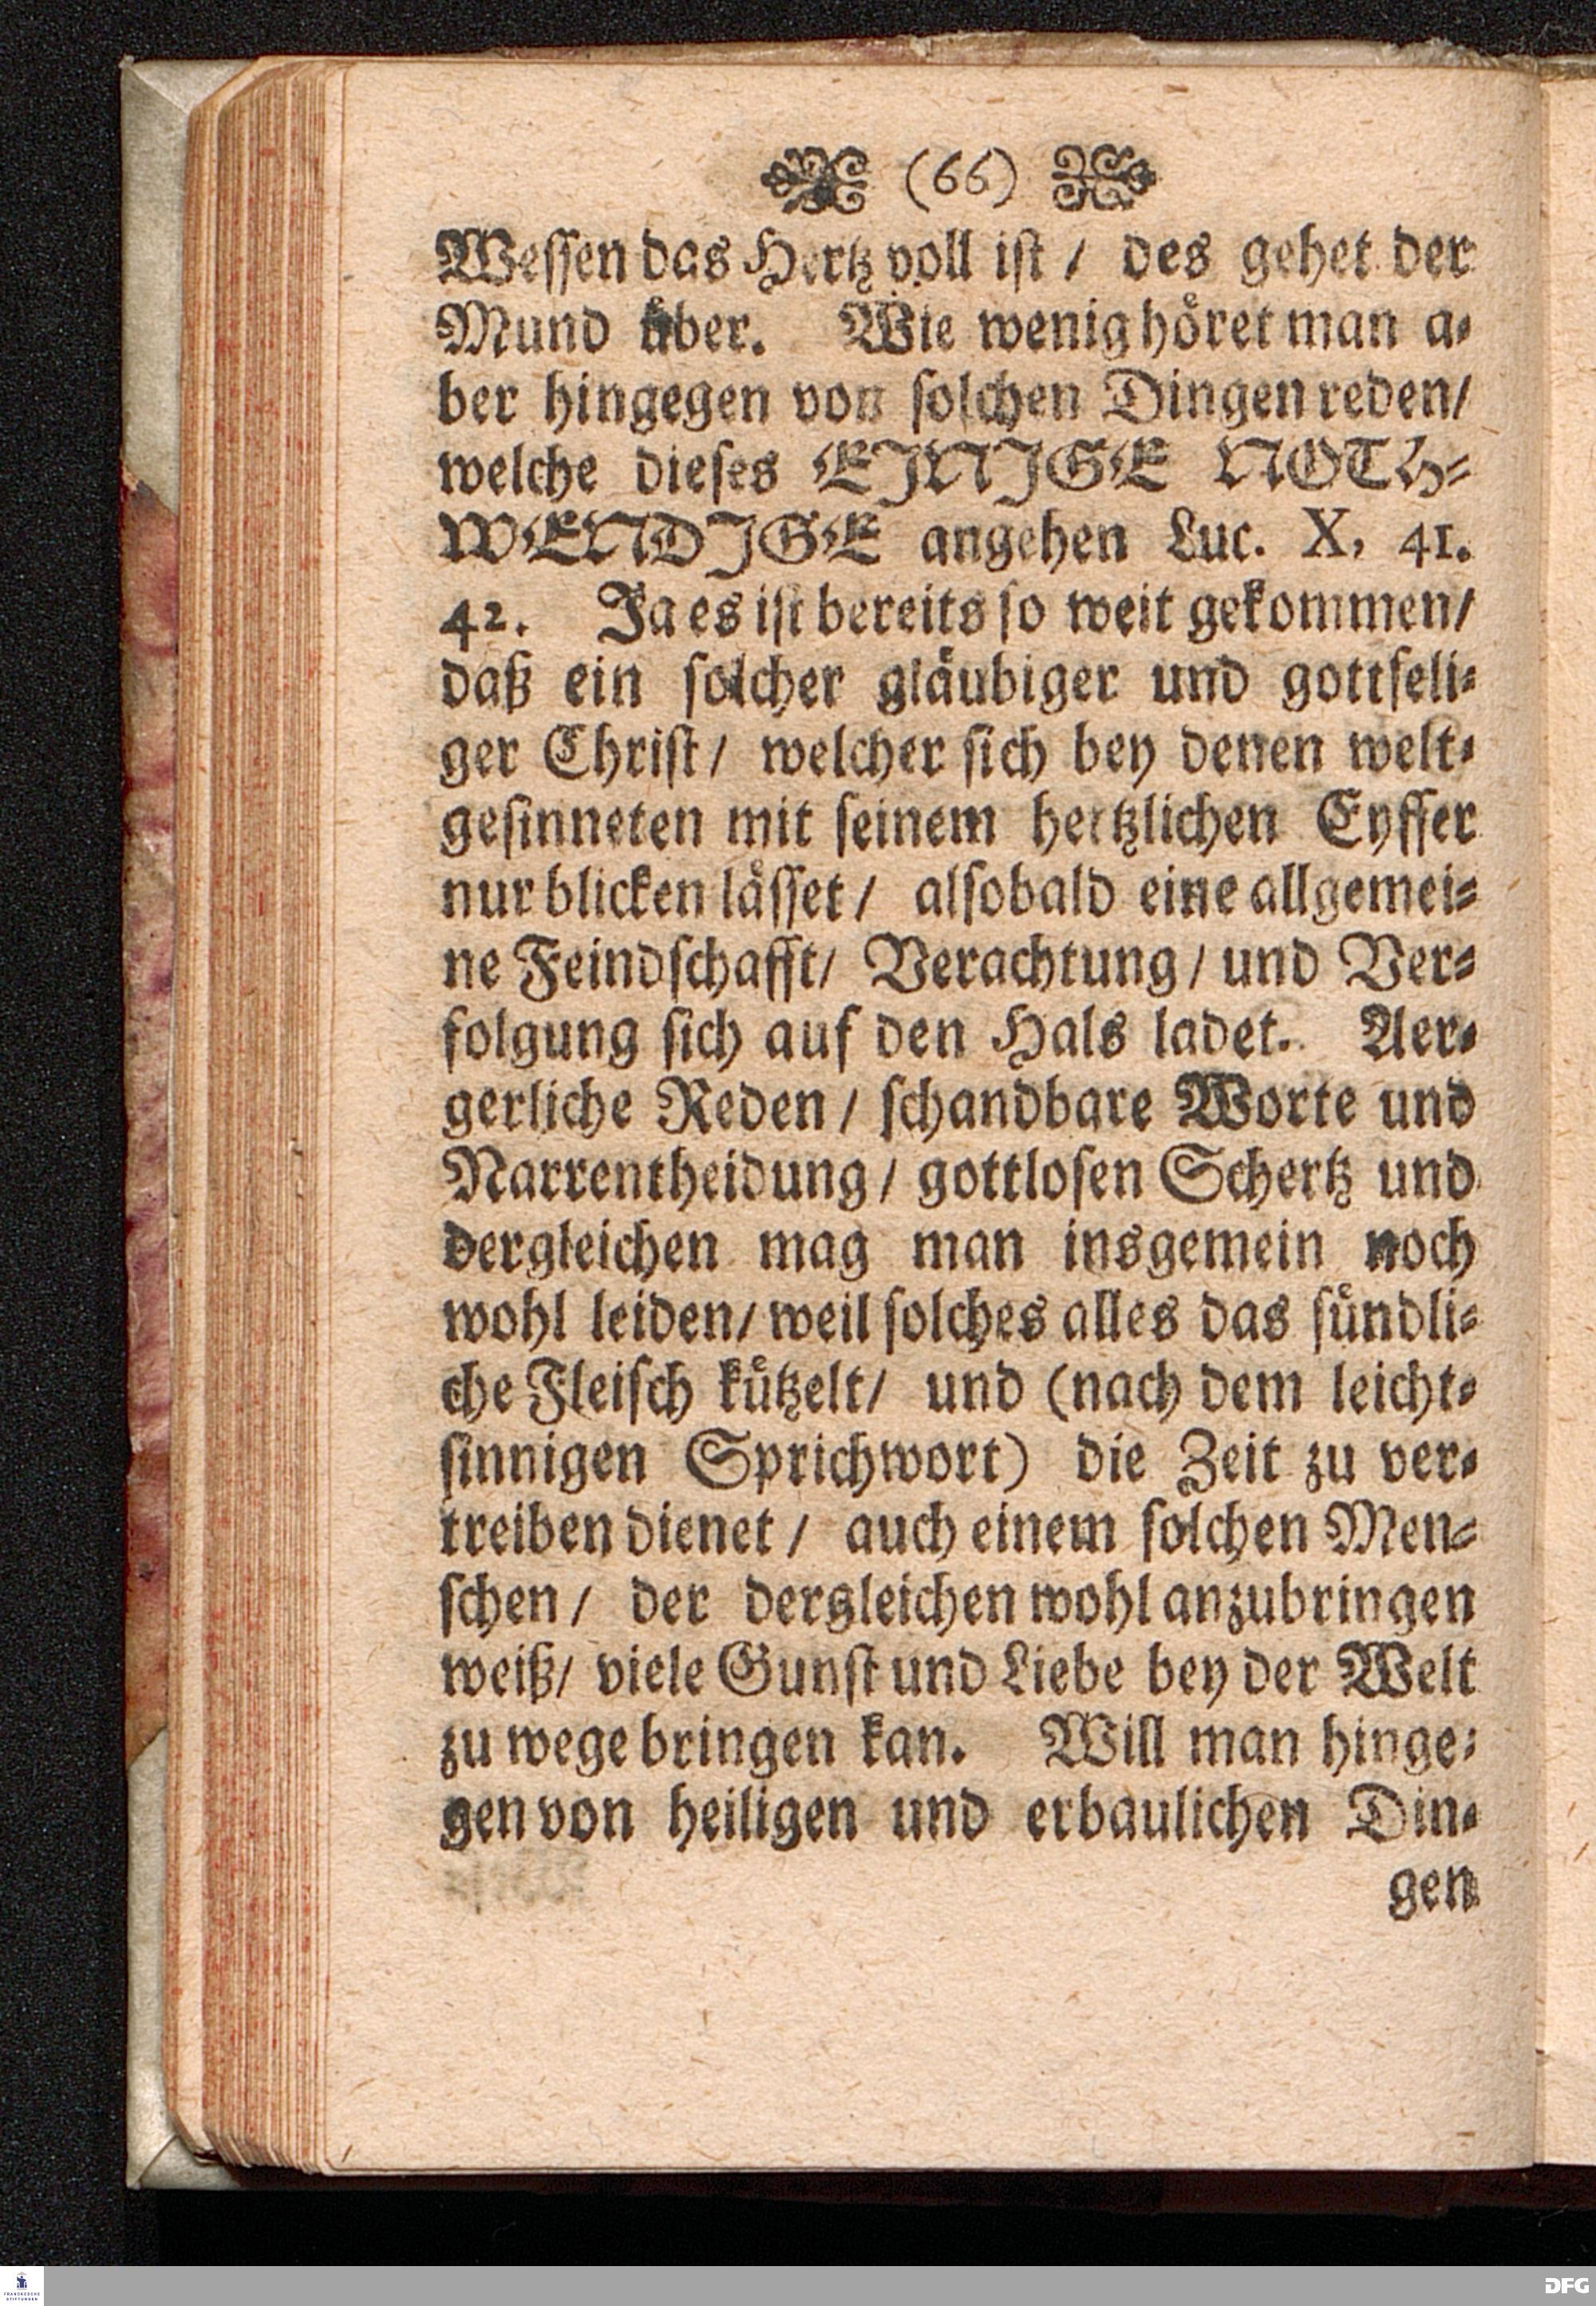 (66)
Wessen das Hertz voll ist / des gehet der
Mund über. Wie wenig höret man a-
ber hingegen von solchen Dingen reden/
welche dieses EINIGE NOTH-
WENDIGE angehen Luc. X, 41.
42. Ja es ist bereits so weit gekommen/
daß ein solcher gläubiger und gottseli-
ger Christ/ welcher sich bey denen welt-
gesinneten mit seinem hertzlichen Eyffer
nur blicken lässet / alsobald eine allgemei-
ne Feindschafft/ Verachtung / und Ver-
folgung sich auf den Hals ladet. Aer-
gerliche Reden / schandbare Worte und
Narrentheidung / gottlosen Schertz und
dergleichen mag man insgemein noch
wohl leiden/ weil solches alles das sündli-
che Fleisch kützelt/ und (nach dem leicht-
sinnigen Sprichwort) die Zeit zu ver-
treiben dienet / auch einem solchen Men-
schen / der dergleichen wohl anzubringen
weiß/ viele Gunst und Liebe bey der Welt
zu wege bringen kan. Will man hinge-
gen von heiligen und erbaulichen Din-
gen
FRANCKESCHE
STIFTUNGEN
DFG